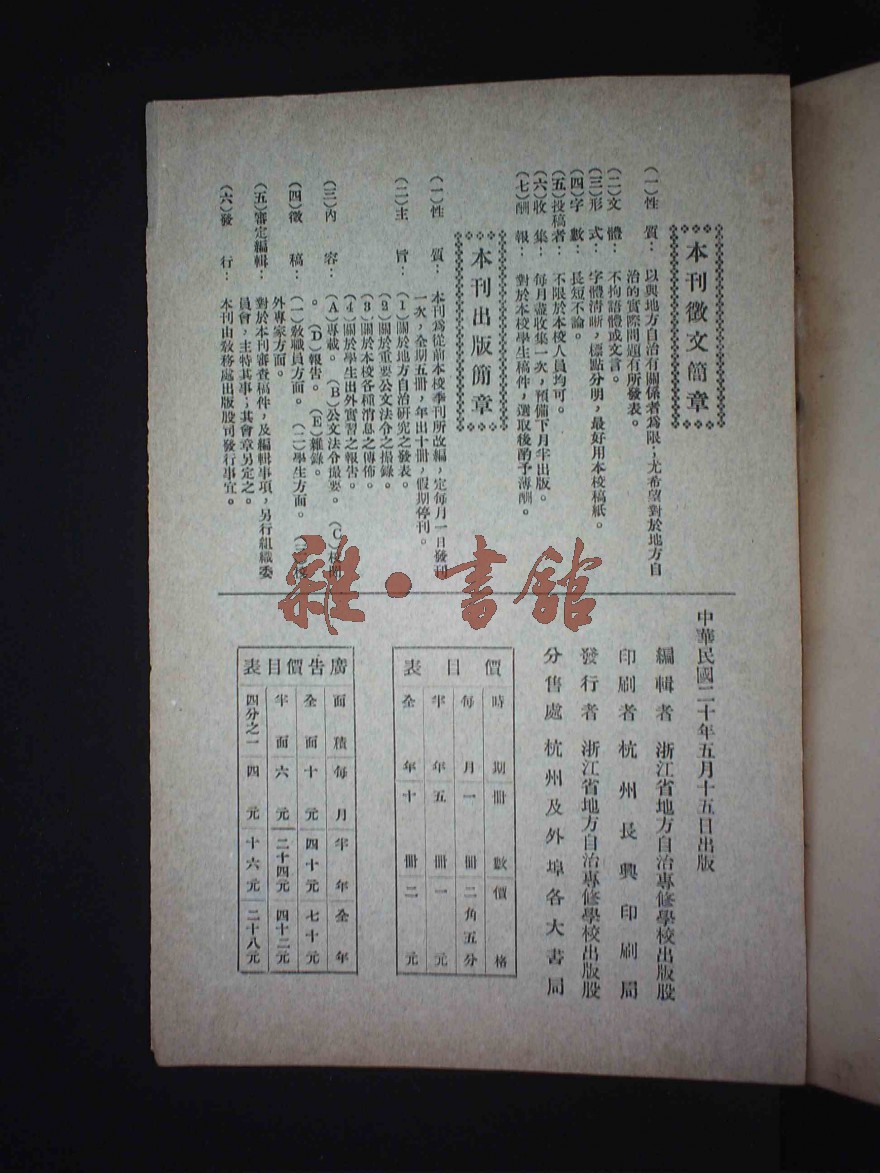 本刊徵文簡章
(一)性質：以與地方自治有關係者爲限；尤希望對於地方自
治的實際問題有所發表。
(二)文體：不拘語體或文言。
(三)形式：字體清晰，標點分明，最好用本校稿紙。
(四)字數：長短不論。
(五)投稿者：不限於本校人員均可。
(六)收集：每月盡收集一次，預備下月半出版。
(七)酬報：對於本校學生稿件，選取後酌予薄酬。
本刊出版簡章
(一)性質：本刊爲從前本校季刊所改編，定每月一日發刊
一次，全期五冊，年出十冊，假期停刊。
(二)主旨：(1)關於地方自治研究之發表。
(2)關於重要公文法令之撮錄。
(3)關於本校各種消息之傳佈。
(4)關於學生出外實習之報告。
(三)內容：(A)專載。(B)公文法令撮要。(C)校聞
。(D)報告。(E)雜錄。
(四)徵稿：(一)教職員方面。(二)學生方面。(三)校
外專家方面。
(五)審定編輯：對於本刊審查稿件，及編輯事項，另行組織委
員會，主持其事；其會章另定之。
(六)發行：本刊由教務處出版股司發行事宜。
中華民國二十年五月十五日出版
編輯者 浙江省地方自治專修學校出版股
印刷者 杭州長興印刷局
發行者 浙江省地方自治專修學校出版股
分售處 杭州及外埠各大書局
價目表
時期 冊數 價格
每月 一冊 二角五分
半年 五冊 一元
全年 十冊 二元
廣告價目表
面積 每月 半年 全年
全面 十元 四十元 七十元
半面 六元 二十四元 四十二元
四分之一 四元 十六元 二十八元
雜·書館